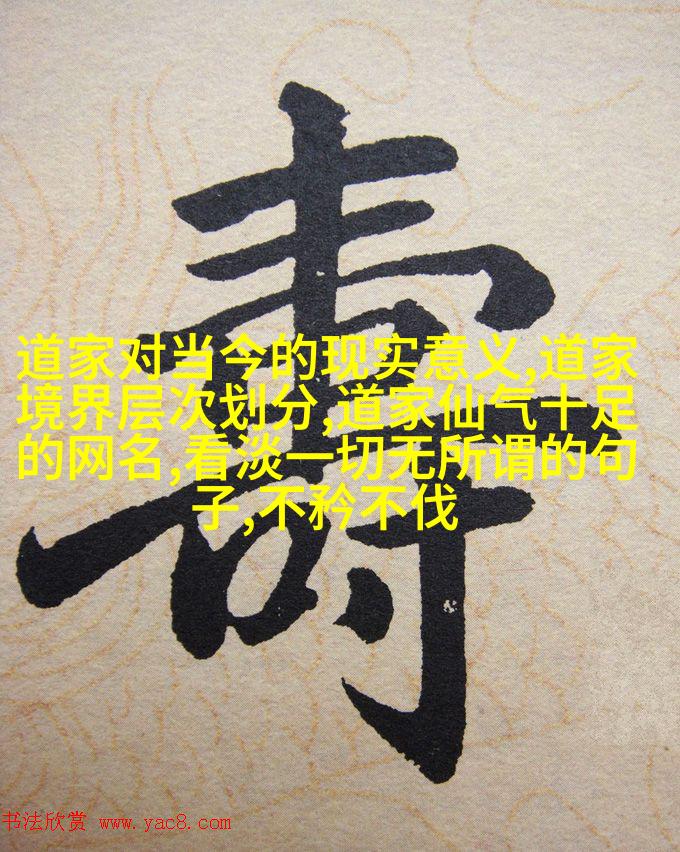 壽
道家对当今的现实意义,道家
境界层次划分,道家仙气十足
的网名,看淡一切无所谓的句
子,不矜不伐
书法欣赏 www.yac8.com